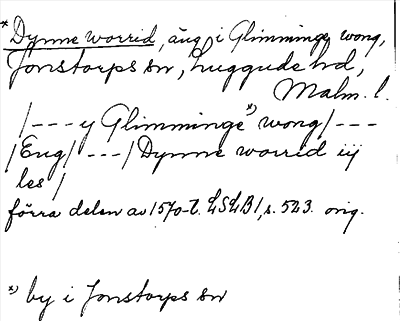 * Dynne worrid, äng i Glimminge wong,
Jonstorps sn, Luggude hd,
Malm. l.
/--- y Glimminge *) wong/---
/Eng/ ---/Dynne worrid iij
les/
förra delen av 1570-t. LSLB1, s. 523. orig.
*) by i Jonstorps sn